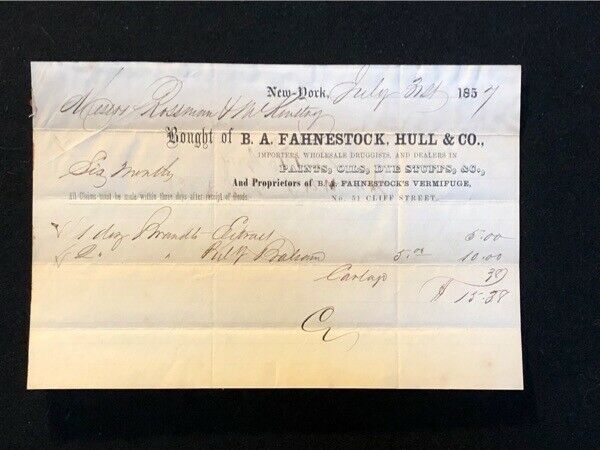 New-York, July 31st 1857
Messrs Rossman & McKinstry
Bought of B. A. FAHNESTOCK, HULL & CO.,
IMPORTERS, WHOLESALE DRUGGISTS, AND DEALERS IN
Six Months
PAINTS, OILS, DYE STUFFS, &C.,
And Proprietors of B. A. FAHNESTOCK'S VERMIFUGE,
All Claims must be made within three days after receipt of Goods.
No. 51 CLIFF STREET.
1 doz Brandts Extract 5.00
2 " " Pul Balsam 5.00 10.00
Cartage 38
$ 15.38